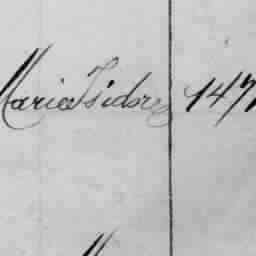 Maria Isidore 147